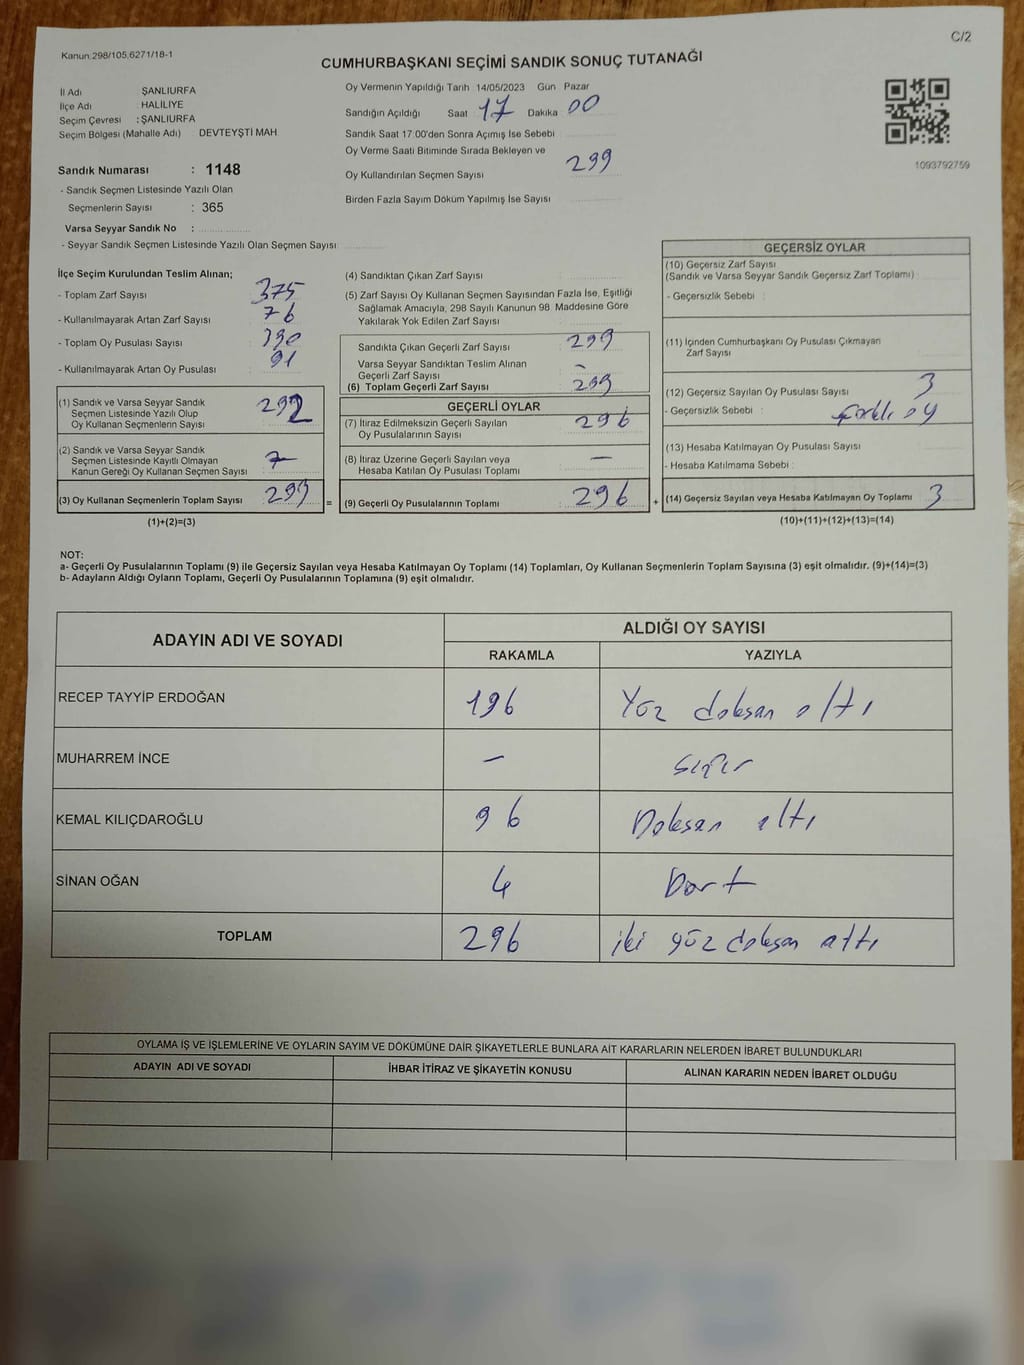 C/2
Kanun:298/105,6271/18-1
CUMHURBAŞKANI SEÇİMİ SANDIK SONUÇ TUTANAĞI
İl Adı ŞANLIURFA
İlçe Adı : HALİLİYE
Seçim Çevresi : ŞANLIURFA
Seçim Bölgesi (Mahalle Adı) : DEVTEYŞTİ MAH
Sandık Numarası : 1148
- Sandık Seçmen Listesinde Yazılı Olan
Seçmenlerin Sayısı : 365
Varsa Seyyar Sandık No :
- Seyyar Sandık Seçmen Listesinde Yazılı Olan Seçmen Sayısı
Oy Vermenin Yapıldığı Tarih 14/05/2023 Gün Pazar
Sandığın Açıldığı Saat 17 Dakika 00
Sandık Saat 17:00'den Sonra Açımış İse Sebebi
Oy Verme Saati Bitiminde Sırada Bekleyen ve
Oy Kullandırılan Seçmen Sayısı 299
Birden Fazla Sayım Döküm Yapılmış İse Sayısı
1093792759
İlçe Seçim Kurulundan Teslim Alınan;
- Toplam Zarf Sayısı 375
- Kullanılmayarak Artan Zarf Sayısı 76
- Toplam Oy Pusulası Sayısı 390
- Kullanılmayarak Artan Oy Pusulası 91
(1) Sandık ve Varsa Seyyar Sandık
Seçmen Listesinde Yazılı Olup
Oy Kullanan Seçmenlerin Sayısı 292
(2) Sandık ve Varsa Seyyar Sandık
Seçmen Listesinde Kayıtlı Olmayan
Kanun Gereği Oy Kullanan Seçmen Sayısı 7
(3) Oy Kullanan Seçmenlerin Toplam Sayısı 299 =
(1)+(2)=(3)
(4) Sandıktan Çıkan Zarf Sayısı
(5) Zarf Sayısı Oy Kullanan Seçmen Sayısından Fazla İse, Eşitliği
Sağlamak Amacıyla, 298 Sayılı Kanunun 98. Maddesine Göre
Yakılarak Yok Edilen Zarf Sayısı
Sandıkta Çıkan Geçerli Zarf Sayısı 299
Varsa Seyyar Sandıktan Teslim Alınan
Geçerli Zarf Sayısı -
(6) Toplam Geçerli Zarf Sayısı 299
GEÇERLİ OYLAR
(7) İtiraz Edilmeksizin Geçerli Sayılan
Oy Pusulalarının Sayısı 296
(8) İtiraz Üzerine Geçerli Sayılan veya
Hesaba Katılan Oy Pusulası Toplamı —
(9) Geçerli Oy Pusulalarının Toplamı 296 +
GEÇERSİZ OYLAR
(10) Geçersiz Zarf Sayısı
(Sandık ve Varsa Seyyar Sandık Geçersiz Zarf Toplamı)
- Geçersizlik Sebebi :
(11) İçinden Cumhurbaşkanı Oy Pusulası Çıkmayan
Zarf Sayısı
(12) Geçersiz Sayılan Oy Pusulası Sayısı 3
- Geçersizlik Sebebi : oy
(13) Hesaba Katılmayan Oy Pusulası Sayısı
- Hesaba Katılmama Sebebi :
(14) Geçersiz Sayılan veya Hesaba Katılmayan Oy Toplamı 3
(10)+(11)+(12)+(13)=(14)
NOT:
a- Geçerli Oy Pusulalarının Toplamı (9) ile Geçersiz Sayılan veya Hesaba Katılmayan Oy Toplamı (14) Toplamları, Oy Kullanan Seçmenlerin Toplam Sayısına (3) eşit olmalıdır. (9)+(14)=(3)
b- Adayların Aldığı Oyların Toplamı, Geçerli Oy Pusulalarının Toplamına (9) eşit olmalıdır.
ADAYIN ADI VE SOYADI
ALDIĞI OY SAYISI
RAKAMLA YAZIYLA
RECEP TAYYİP ERDOĞAN 196 Yüz doksan altı
MUHARREM İNCE — sıfır
KEMAL KILIÇDAROĞLU 96 Doksan altı
SİNAN OĞAN 4 Dört
TOPLAM 296 iki yüz doksan altı
OYLAMA İŞ VE İŞLEMLERİNE VE OYLARIN SAYIM VE DÖKÜMÜNE DAİR ŞİKAYETLERLE BUNLARA AİT KARARLARIN NELERDEN İBARET BULUNDUKLARI
ADAYIN ADI VE SOYADI İHBAR İTİRAZ VE ŞİKAYETİN KONUSU ALINAN KARARIN NEDEN İBARET OLDUĞU